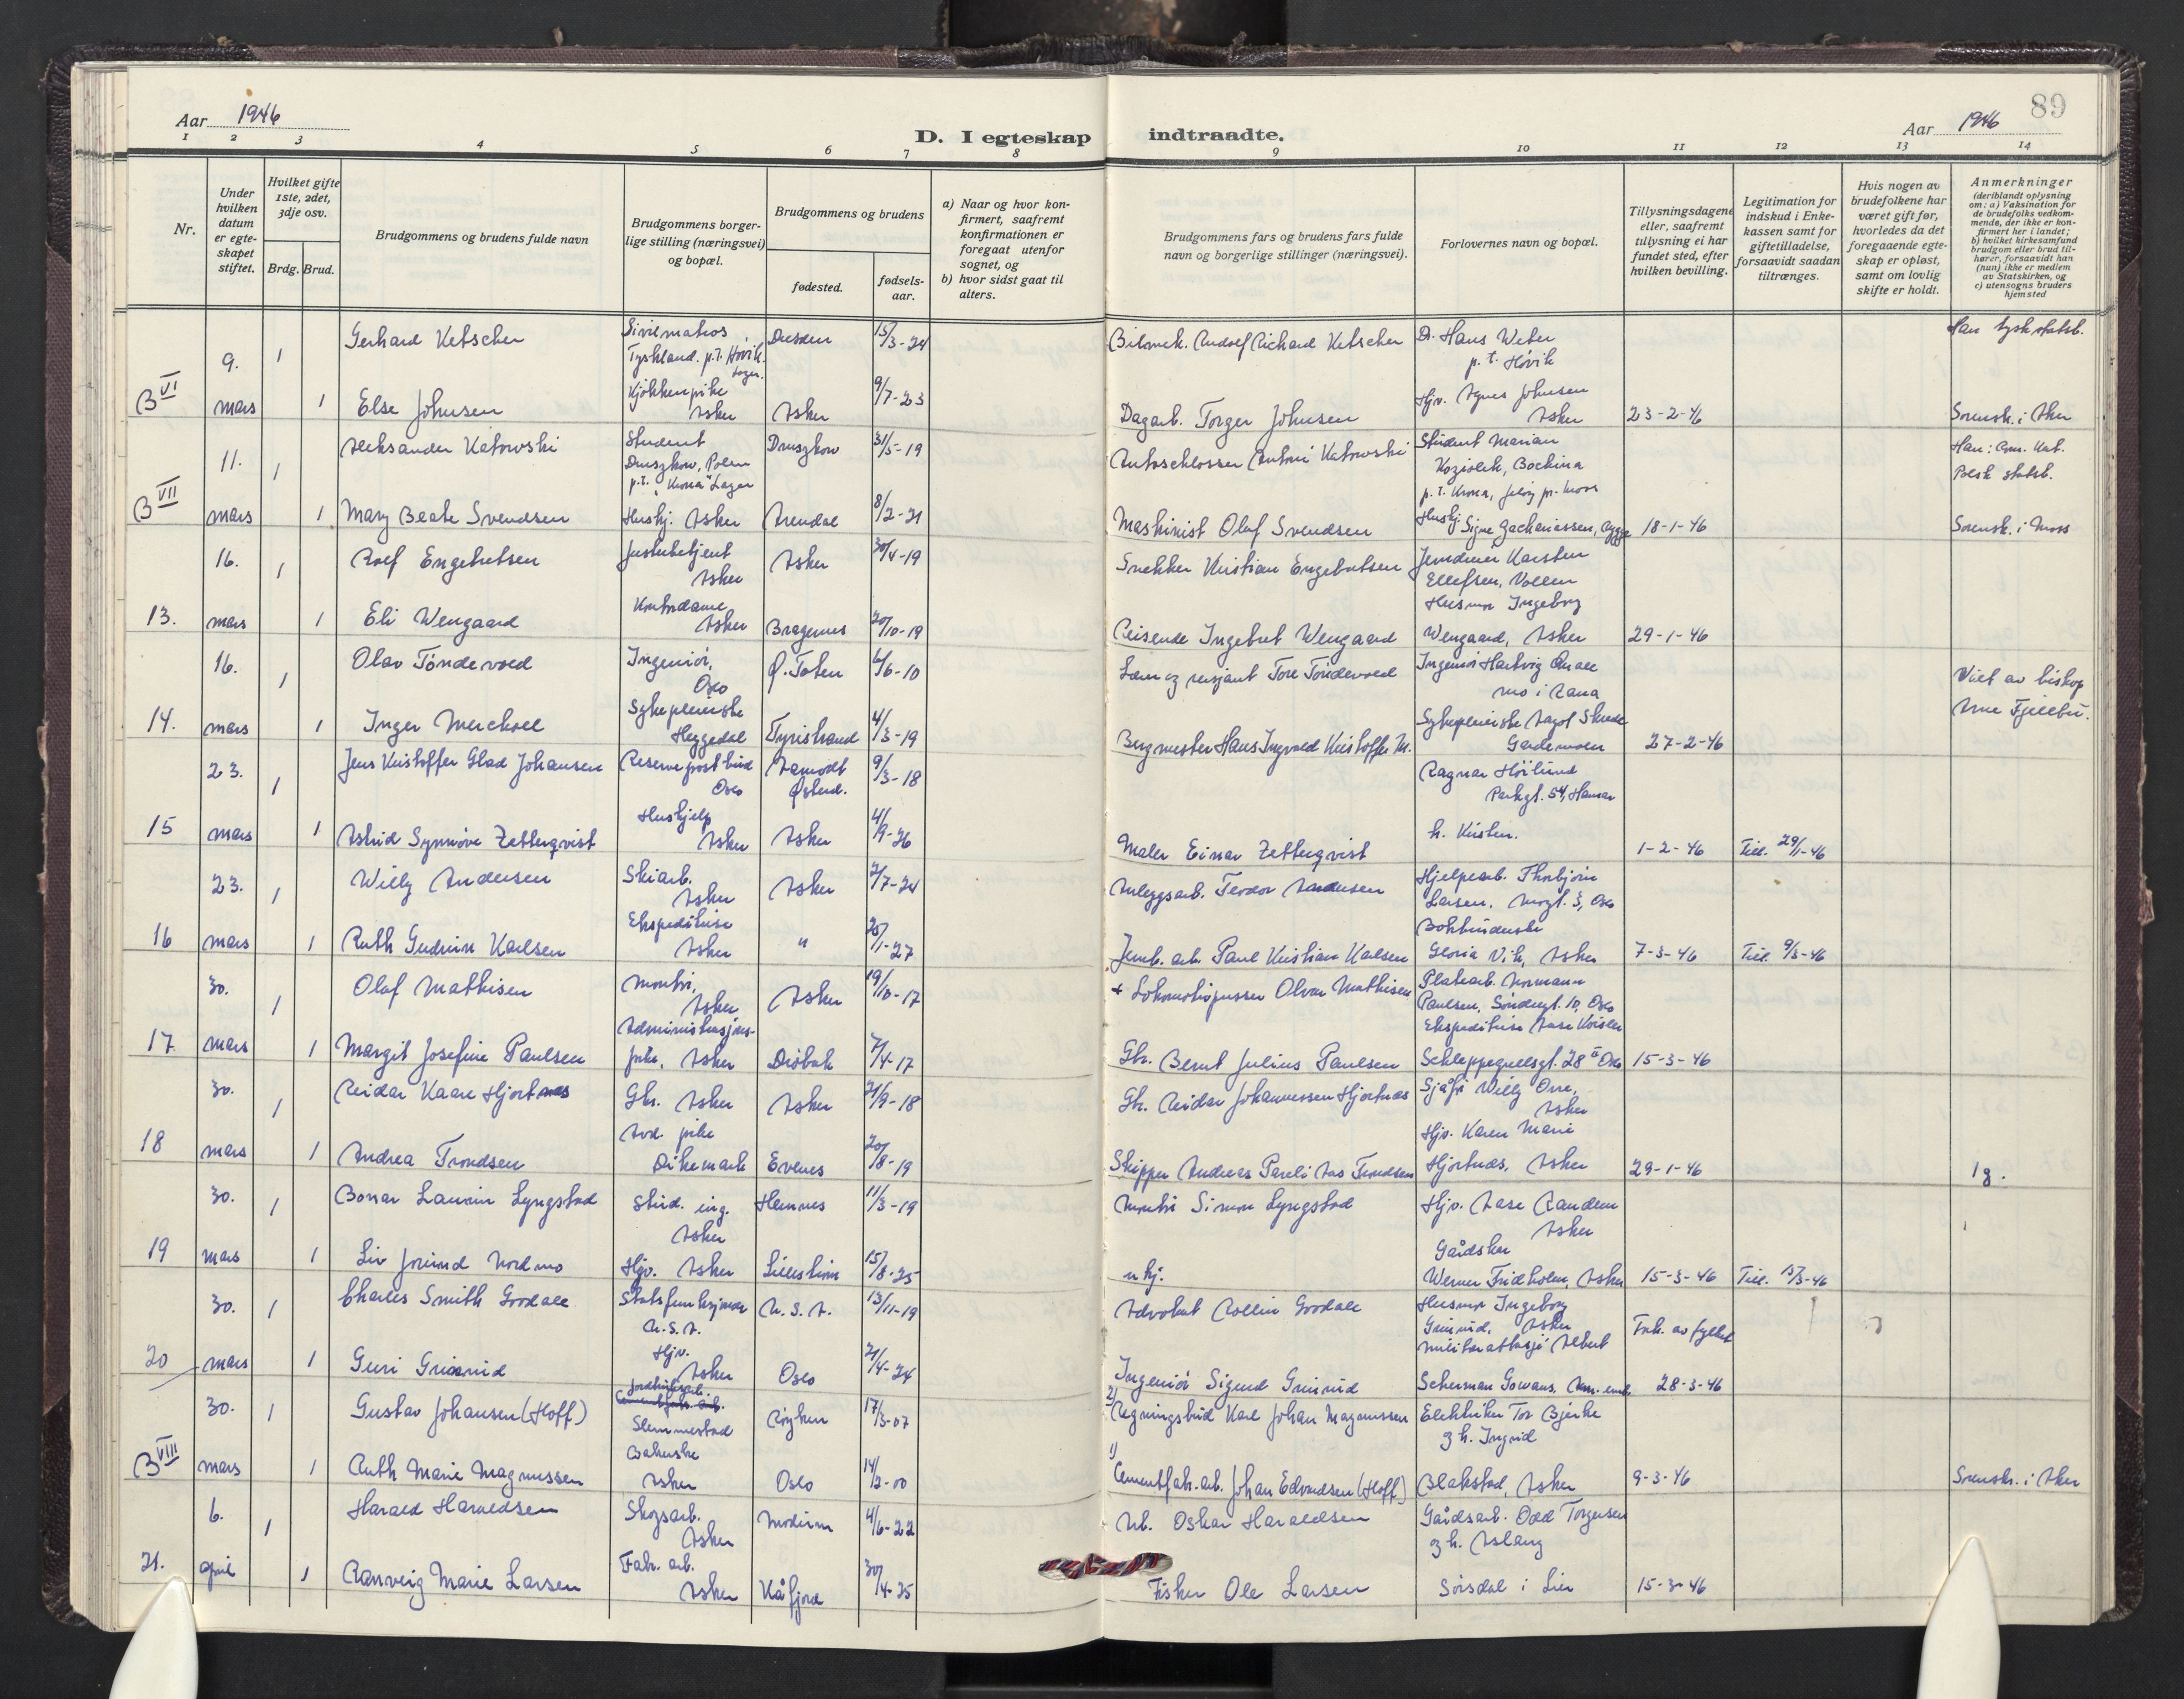 Aar 1946
D. I egteskap indtraadte.
Aar 1946
89
1 2 3 4 5 6 7 8 9 10 11 12 13 14
Nr.
Under hvilken datum er egteskapet stiftet.
Hvilket gifte 1ste, 2det, 3dje osv.
Brdg. Brud.
Brudgommens og brudens fulde navn
Brudgommens borgerlige stilling (næringsvei) og bopæl.
Brudgommens og brudens
fødested.
fødselsaar.
a) Naar og hvor konfirmert, saafremt konfirmationen er foregaat utenfor sognet, og
b) hvor sidst gaat til alters.
Brudgommens fars og brudens fars fulde navn og borgerlige stillinger (næringsvei).
Forlovernes navn og bopæl.
Tillysningsdagene eller, saafremt tillysning ei har fundet sted, efter hvilken bevilling.
Legitimation for indskud i Enkekassen samt for giftetilladelse, forsaavidt saadan tiltrænges.
Hvis nogen av brudefolkene har været gift før, hvorledes da det foregaaende egteskap er opløst, samt om lovlig skifte er holdt.
Anmerkninger
(deriblandt oplysning om: a) Vaksination for de brudefolks vedkommende, der ikke er konfirmert her i landet; b) hvilket kirkesamfund brudgom eller brud tilhører, forsaavidt han (hun) ikke er medlem av Statskirken, og c) utensogns bruders hjemsted
9. 1 Gerhard Ketscher Sivilmatros Tyskland. p.t. Høvik Lager. Dresden 15/3-24 Rudolf Richard Ketscher Dr. Hans Weber p.t. Høvik Han tysk statsb.
B VI mars 1 Else Johnsen Kjökkenpike Asker Asker 9/7-23 Dagarb. Torger Johnsen Hjv. Agnes Johnsen Asker 23-2-46 Sorensk. i Aker
11. 1 Aleksander Katowski Student Druszkow, Polen p.t. "Krona" Lager Druszkow 31/5-19 Autoschlosser Antoni Katowski Student Marian Koziolek, Bochina p.t. Krona, Jelöy pr. Moss Han: Rom. Kat. Polsk statsb.
B VII mars 1 Mary Beate Svendsen Hushj. Asker Arendal 8/2-21 Maskinist Olaf Svendsen Hushj. Signe Zachariassen, Rygge 18-1-46 Sorensk. i Moss
16. 1 Rolf Engebretsen Asker Asker 30/4-19 Snekker Kristian Engebretsen Karsten Ellefsen, Vollen
13. mars 1 Eli Wengaard Kontordame Asker Bragernes 20/10-19 Reisende Ingebret Wengaard Husmor Ingeborg Wengaard, Asker 29-1-46
16. 1 Olav Töndevold Ingeniör, Oslo Ø. Toten 6/6-10 Tore Töndevold Ingeniör Hartvig Qvale Mo i Rana Viet av biskop Arne Fjellbu.
14. mars 1 Inger Merckoll Sykepleierske Heggedal Tyristrand 4/3-19 Bergmester Hans Ingvald Kristoffer M. Sykepleierske Gardermoen 27-2-46
23. 1 Jens Kristoffer Glad Johansen Reservepostbud Oslo Åamodt Østerd. 9/3-18 Ragnar Höilund Parkgt. 54, Hamar
15 mars 1 Astrid Synnöve Zetterqvist Hushjelp Asker Asker 4/9-26 Maler Einar Zetterqvist h. Kirsten. 1-2-46 Till. 29/1-46
23. 1 Willy Andersen Skiarb. Asker Asker 2/7-24 Anleggsarb. Teodor Andersen Hjelpearb. Thorbjörn Larsen, Oslo
16 mars 1 Ruth Gudrun Karlsen Ekspeditrise Asker " 25/1-27 Jernb. arb. Paul Kristian Karlsen Bokbinderske Gloria Vik, Asker 7-3-46 Till. 9/3-46
30. 1 Olaf Mathisen Montör, Asker Asker 19/10-17 + Lokomotivpusser Olvar Mathisen Platearb. Normann Paulsen, Söndregt. 10, Oslo
17 mars 1 Margit Josefine Paulsen Administrasjonspike, Asker Dröbak 7/4-17 Gbr. Bernt Julius Paulsen Ekspeditrise Aase Schleppegrellsgt. 28 Oslo 15-3-46
30. 1 Reidar Kaare Hjortnæs Gbr. Asker Asker 21/9-18 Gbr. Reidar Johannessen Hjortnæs Sjåför Willy Orre, Asker
18 mars 1 Andrea Trondsen Avd. pike Dikemark Evenes 20/8-19 Skipper Andreas Pareli Aas Trondsen Hjv. Karen Marie Hjortnæs, Asker 29-1-46 1g.
30. 1 Bonar Laurin Lyngstad Stud. ing. Asker Hemnes 11/3-19 Montör Simon Lyngstad Hjv. Aase Randem Asker
19 mars 1 Liv Jorund Nordmo Hjv. Asker Lilleström 15/8-25 ukj. Gårdsker Werner Fridholm, Asker 15-3-46 Till. 15/3-46
30. 1 Charles Smith Goodale Statsfunksjonær U.S.A. U.S.A. 13/11-19 Advokat Rollin Goodale Husmor Ingeborg Grimrud, Asker
20 mars 1 Guri Grimrud Hjv. Asker Oslo 21/4-24 Ingeniör Sigurd Grimrud militærattasjé Albert Scherman Gowans, Am. emb. Frit. av fylket 28-3-46
30. 1 Gustav Johansen (Hoff) Cementfabr. arb. Slemmestad Röyken 17/3-07 2) Regningsbud Karl Johan Magnussen Elektriker Tor Bjerke og h. Ingrid
B VIII mars 1 Ruth Marie Magnussen Asker Oslo 14/2-00 1) Cementfabr. arb. Johan Edvardsen (Hoff) Blakstad, Asker 9-3-46 Sorensk. i Aker
6. 1 Harald Haraldsen Skogsarb. Asker Modum 4/6-22 Arb. Oskar Haraldsen Gårdsarb. Odd Torgersen og h. Aslaug
21. april 1 Ranveig Marie Larsen Fabr. arb. Asker Kåfjord 30/4-25 Fisker Ole Larsen Sörsdal i Lier 15-3-46